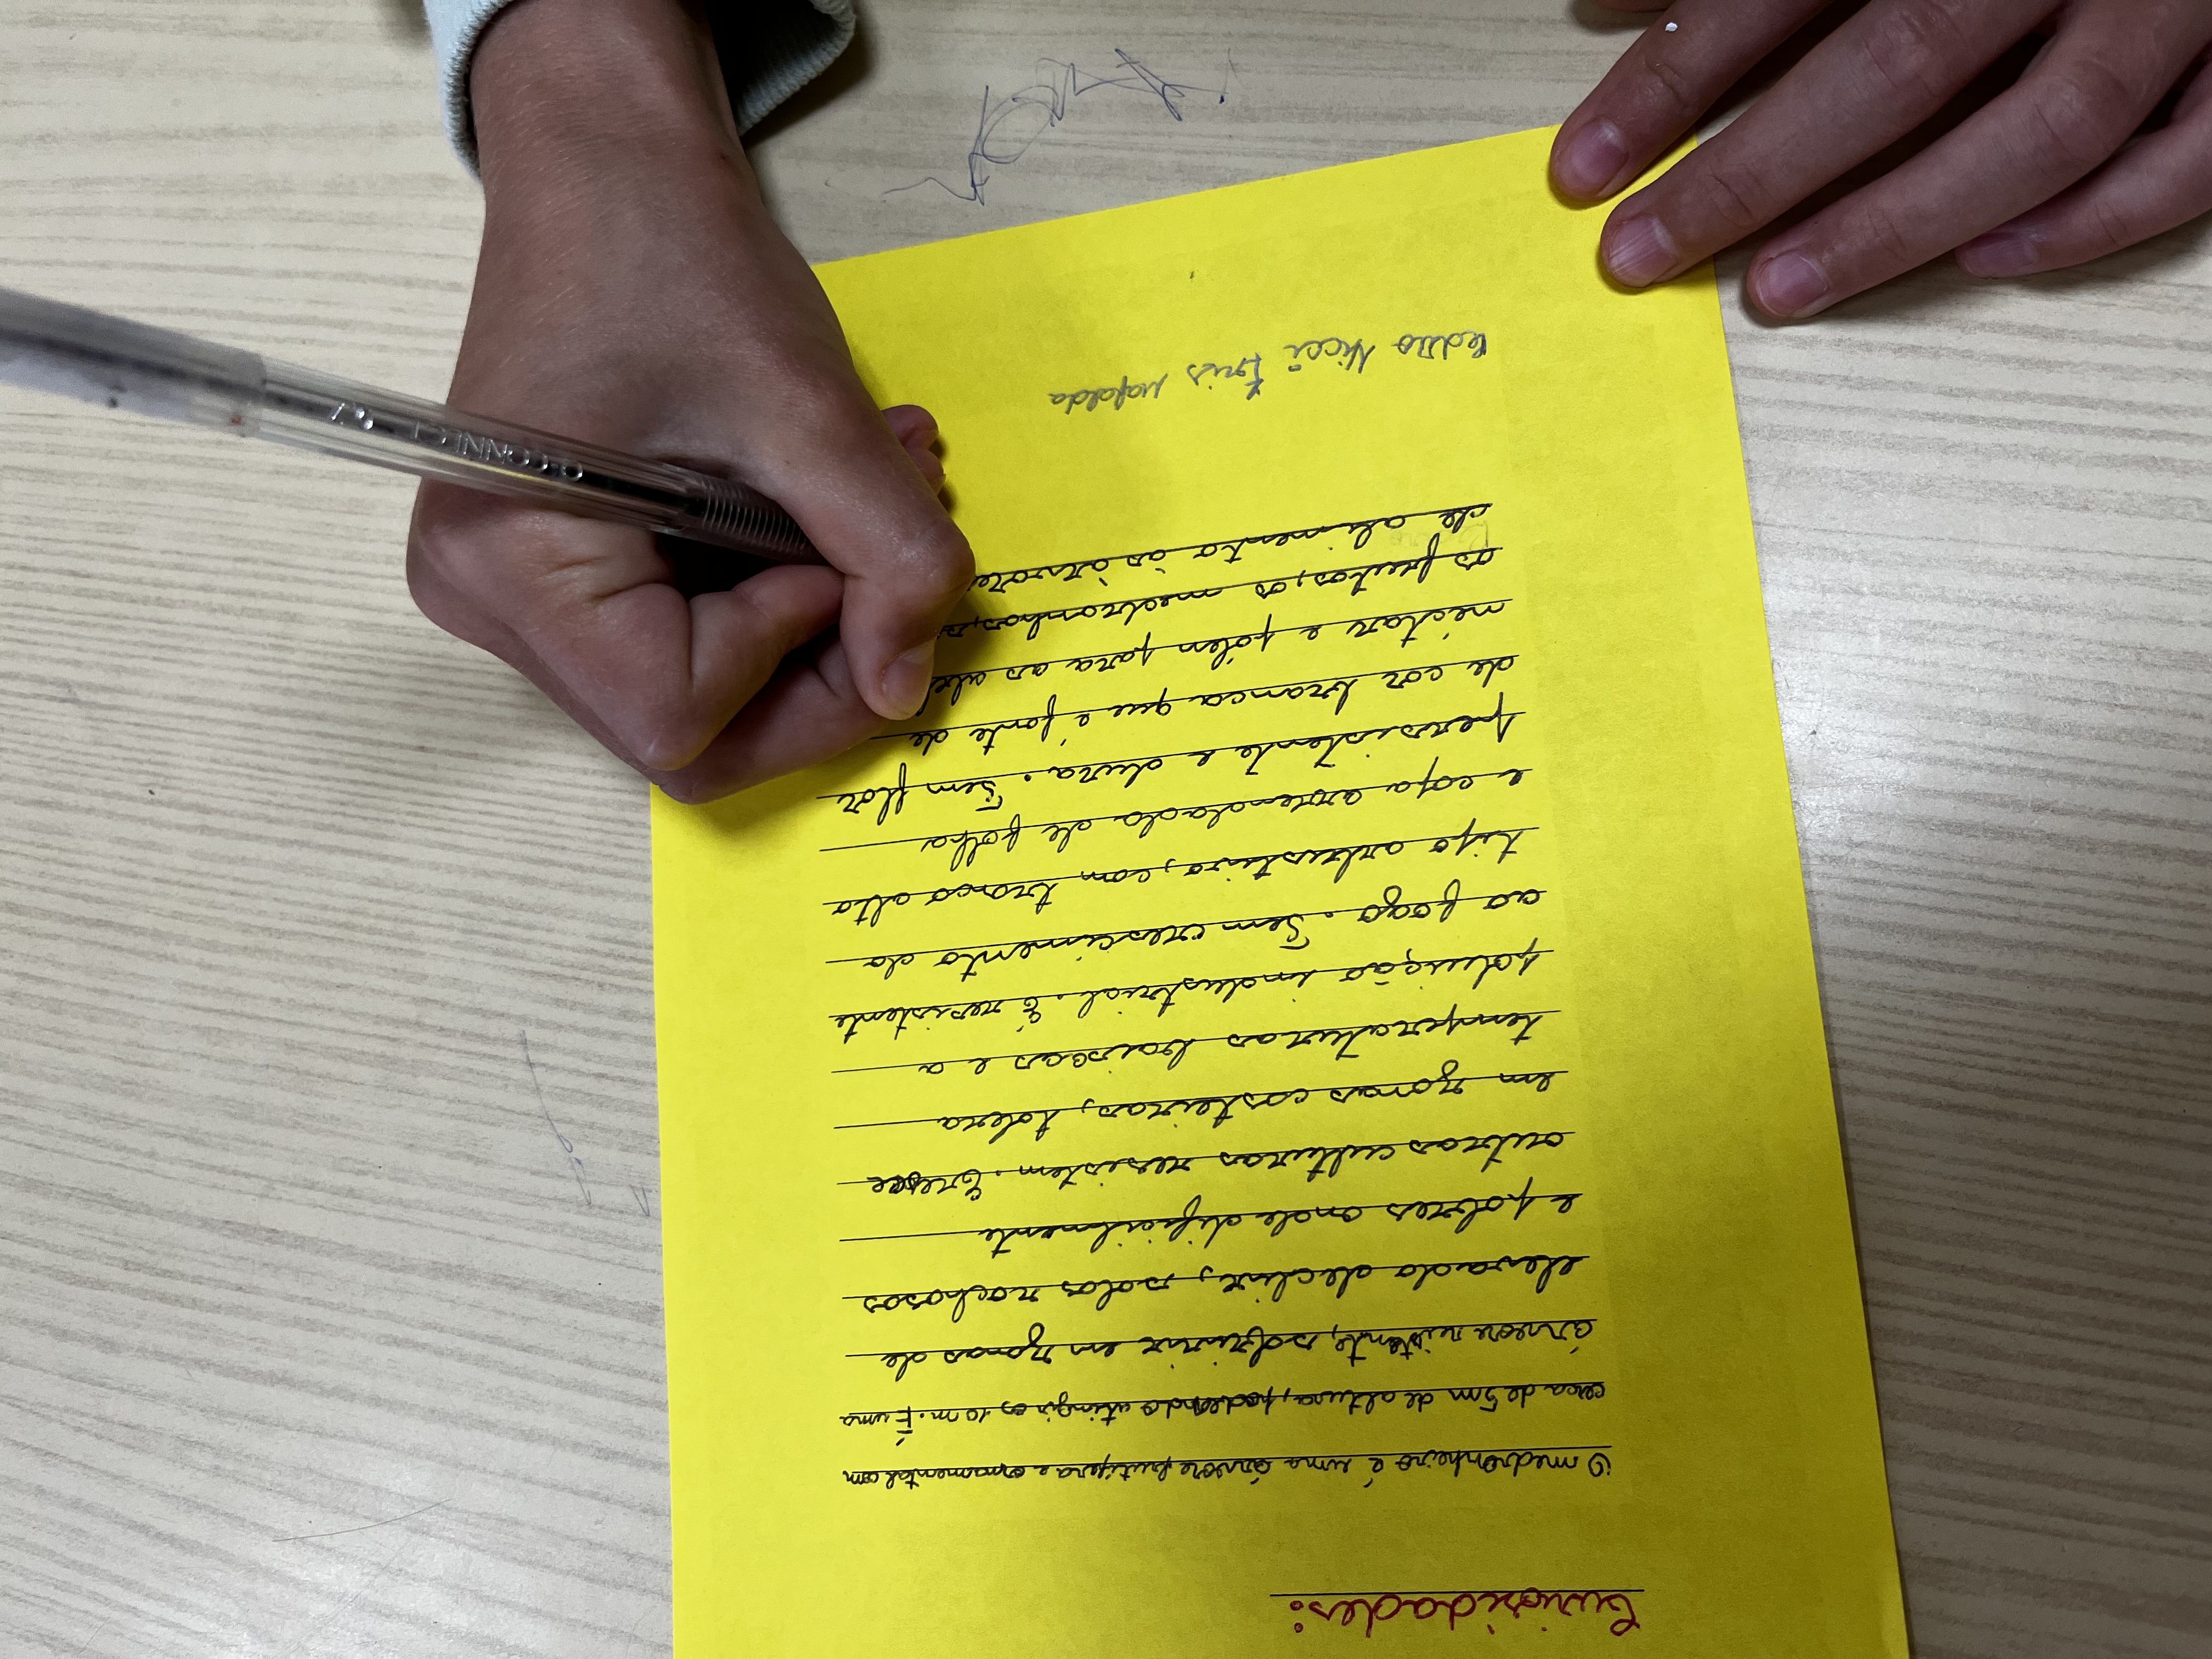 Curiosidades:
O medronheiro é uma árvore frutífera e ornamental com
cerca de 5m de altura, podendo atingir os 10 m. É uma
árvore resistente, sobrevive em zonas de
elevado declive, solos rochosos
e pobres onde dificilmente
outras culturas resistem. Cresce
em zonas costeiras, tolera
temperaturas baixas e a
poluição industrial. É resistente
ao fogo. Tem crescimento do
tipo arbustivo, com tronco alto
e copa arrendada de folha
persistente e dura. Tem flor
de cor branca que é fonte de
néctar e pólen para as
os frutos, os medronhos,
de alimento às
Pedro Nicol Iris Mafalda
CONNECT 0.7